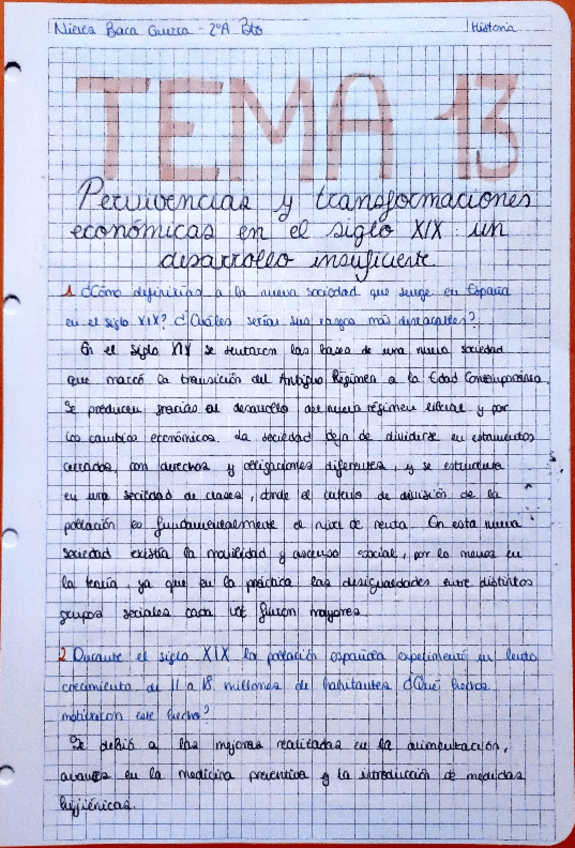 Nieves Baca Guerra - 2ºA Bto Historia
TEMA 13
Pervivencias y transformaciones
económicas en el siglo XIX: un
desarrollo insuficiente
1 ¿Cómo definirías a la nueva sociedad que surge en España
en el siglo XIX? ¿Cuáles serían sus rasgos más destacables?
En el siglo XIX se sentaron las bases de una nueva sociedad
que marcó la transición del Antiguo Régimen a la Edad Contemporánea.
Se producen gracias al desarrollo del nuevo régimen liberal y por
los cambios económicos. La sociedad deja de dividirse en estamentos
cerrados, con derechos y obligaciones diferentes, y se estructura
en una sociedad de clases, donde el criterio de división de la
población es fundamentalmente el nivel de renta. En esta nueva
sociedad existía la movilidad y ascenso social, por lo menos en
la teoría, ya que en la práctica las desigualdades entre distintos
grupos sociales cada vez fueron mayores.
2 Durante el siglo XIX la población española experimentó un lento
crecimiento de 11 a 18 millones de habitantes ¿Qué hechos
motivaron este hecho?
Se debió a las mejoras realizadas en la alimentación,
avances en la medicina preventiva y la introducción de medidas
higiénicas.